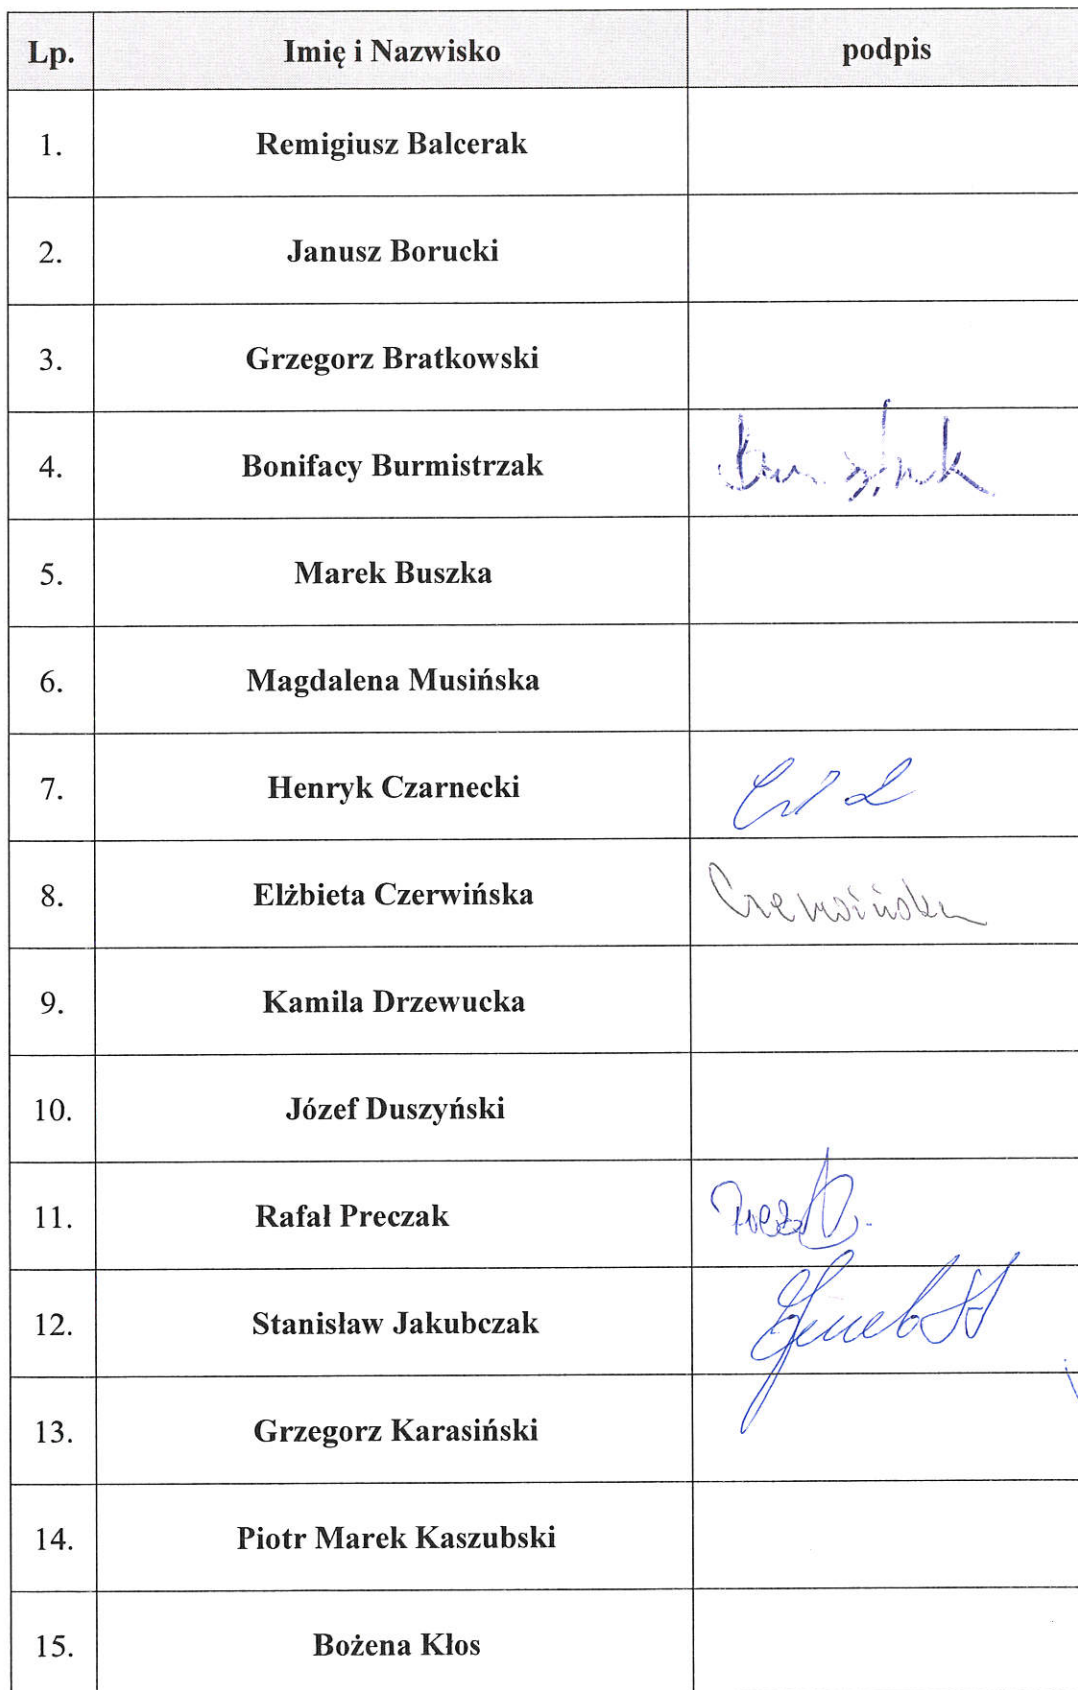 Lp. Imię i Nazwisko podpis
1. Remigiusz Balcerak
2. Janusz Borucki
3. Grzegorz Bratkowski
4. Bonifacy Burmistrzak
5. Marek Buszka
6. Magdalena Musińska
7. Henryk Czarnecki
8. Elżbieta Czerwińska Czerwińska
9. Kamila Drzewucka
10. Józef Duszyński
11. Rafał Preczak
12. Stanisław Jakubczak
13. Grzegorz Karasiński
14. Piotr Marek Kaszubski
15. Bożena Kłos